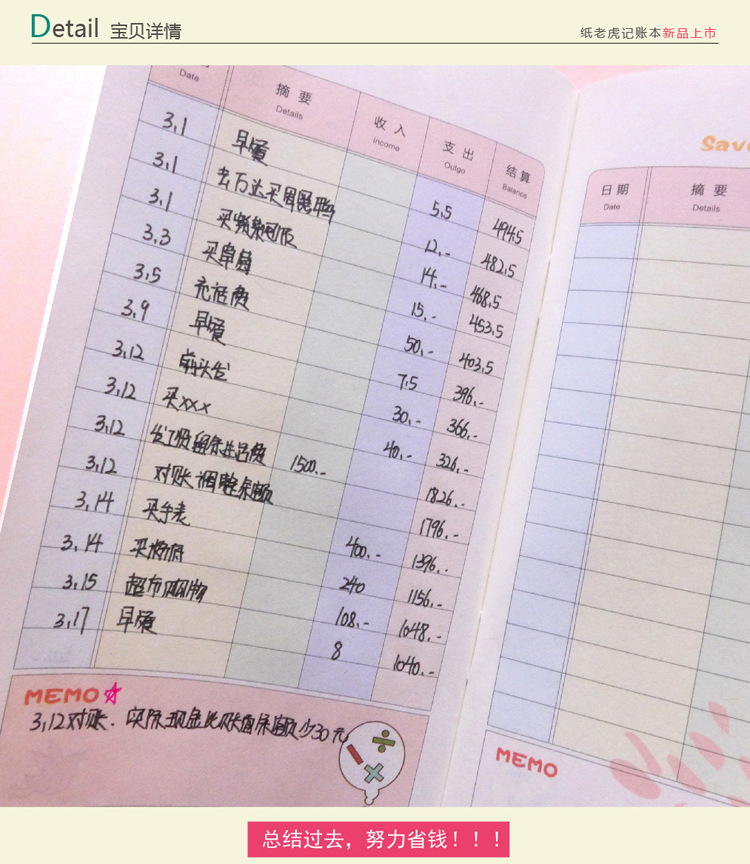 Detail 宝贝详情
纸老虎记账本新品上市
Date 摘要 Details 收入 Income 支出 Outgo 结算 Balance
3,1 早餐 5,5 494,5
3,1 去万达买 12,- 482,5
3,1 买 14,- 468,5
3,3 买 15,- 453,5
3,5 充话费 50,- 403,5
3,9 早餐 7,5 396,-
3,12 剪头发 30,- 366,-
3,12 买xxx 40,- 326,-
3,12 发工资留下生活费 1500,- 1826,-
3,12 对账 调整余额 1796,-
3,14 买手表 400,- 1396,-
3,14 买 240 1156,-
3,15 超市购物 108,- 1048,-
3,17 早餐 8 1040,-
MEMO
3,12对账. 实际现金比账面余额少30元
Save
日期 Date 摘要 Details
MEMO
总结过去，努力省钱！！！